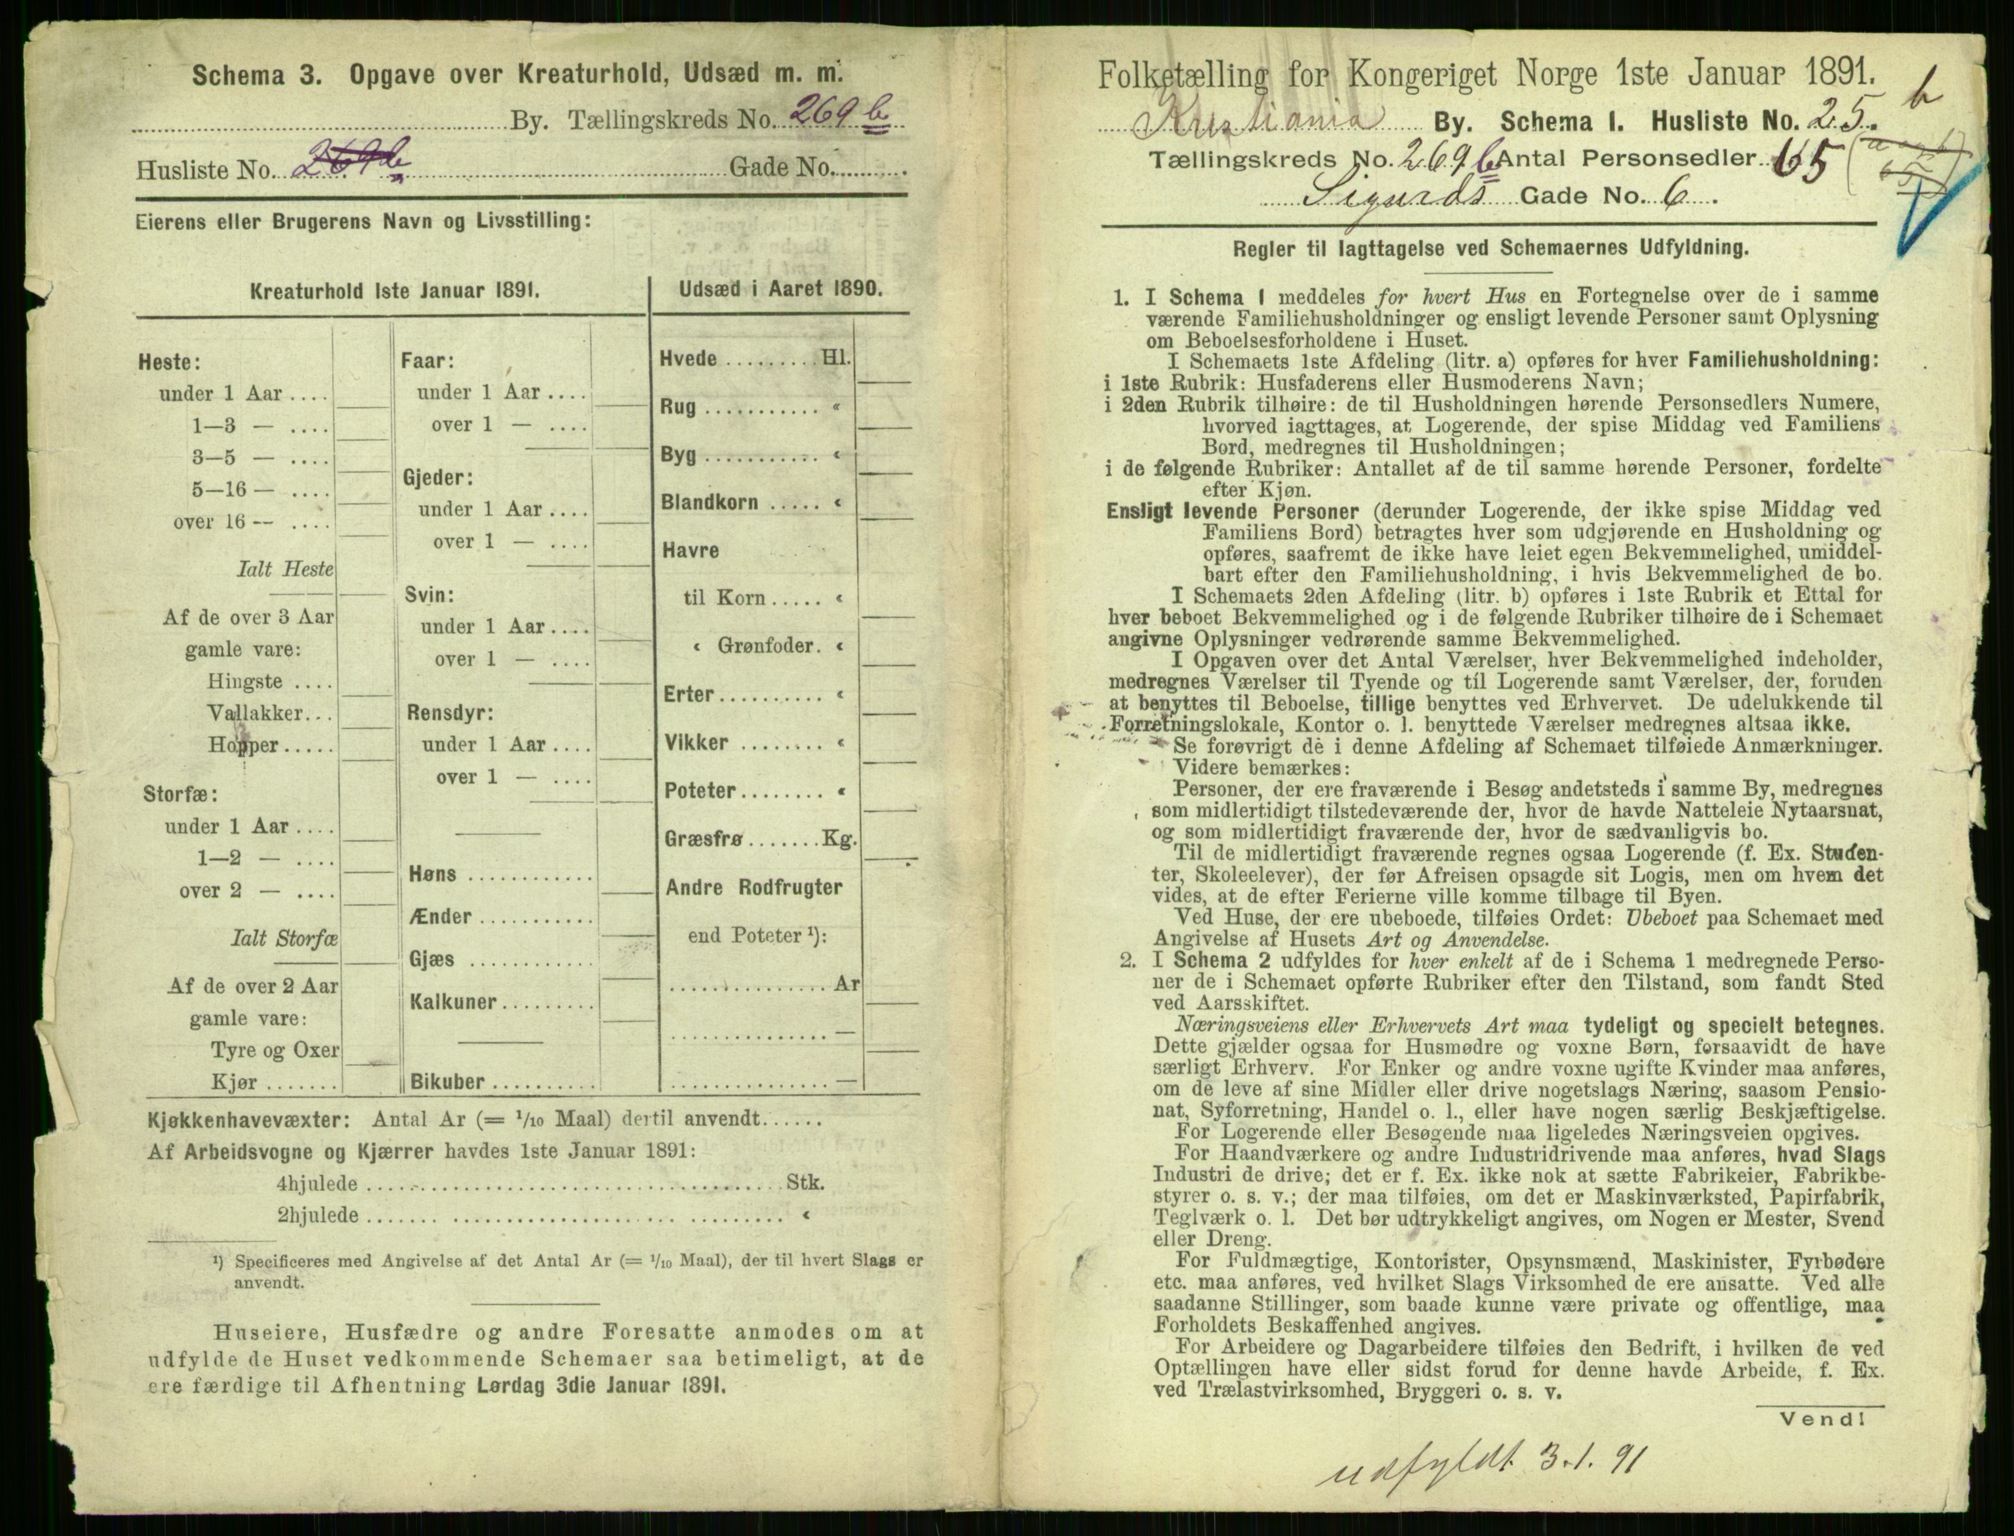 Schema 3. Opgave over Kreaturhold, Udsæd m. m.
By. Tællingskreds No. 269 b
Husliste No. 269 b Gade No.
Eierens eller Brugerens Navn og Livsstilling:
Kreaturhold 1ste Januar 1891.
Heste:
under 1 Aar ....
1—3 — ....
3—5 — ....
5—16 — ....
over 16 — ....
Ialt Heste
Af de over 3 Aar
gamle vare:
Hingste ....
Vallakker...
Hopper.....
Storfæ:
under 1 Aar ....
1—2 — ....
over 2 — ....
Ialt Storfæ
Af de over 2 Aar
gamle vare:
Tyre og Oxer
Kjør .......
Faar:
under 1 Aar ....
over 1 — ....
Gjeder:
under 1 Aar ....
over 1 — ....
Svin:
under 1 Aar ....
over 1 — ....
Rensdyr:
under 1 Aar ....
over 1 — ....
Høns ............
Ænder ...........
Gjæs ............
Kalkuner.........
Bikuber ..........
Udsæd i Aaret 1890.
Hvede .........Hl.
Rug ........... «
Byg ........... «
Blandkorn ..... «
Havre
til Korn ..... «
« Grønfoder. «
Erter.......... «
Vikker ........ «
Poteter........ «
Græsfrø.......Kg.
Andre Rodfrugter
end Poteter ¹):
...............Ar
............... —
............... —
Kjøkkenhavevæxter: Antal Ar (= 1/10 Maal) dertil anvendt......
Af Arbeidsvogne og Kjærrer havdes 1ste Januar 1891:
4hjulede ........................................ Stk.
2hjulede ........................................ «
¹) Specificeres med Angivelse af det Antal Ar (= 1/10 Maal), der til hvert Slags er
anvendt.
Huseiere, Husfædre og andre Foresatte anmodes om at
udfylde de Huset vedkommende Schemaer saa betimeligt, at de
ere færdige til Afhentning Lørdag 3die Januar 1891.
Folketælling for Kongeriget Norge 1ste Januar 1891.
Kristiania By. Schema 1. Husliste No. 25. b
Tællingskreds No. 269 b Antal Personsedler 65
Sigurds Gade No. 6.
Regler til Iagttagelse ved Schemaernes Udfyldning.
1. I Schema 1 meddeles for hvert Hus en Fortegnelse over de i samme
værende Familiehusholdninger og ensligt levende Personer samt Oplysning
om Beboelsesforholdene i Huset.
I Schemaets 1ste Afdeling (litr. a) opføres for hver Familiehusholdning:
i 1ste Rubrik: Husfaderens eller Husmoderens Navn;
i 2den Rubrik tilhøire: de til Husholdningen hørende Personsedlers Numere,
hvorved iagttages, at Logerende, der spise Middag ved Familiens
Bord, medregnes til Husholdningen;
i de følgende Rubriker: Antallet af de til samme hørende Personer, fordelte
efter Kjøn.
Ensligt levende Personer (derunder Logerende, der ikke spise Middag ved
Familiens Bord) betragtes hver som udgjørende en Husholdning og
opføres, saafremt de ikke have leiet egen Bekvemmelighed, umiddel-
bart efter den Familiehusholdning, i hvis Bekvemmelighed de bo.
I Schemaets 2den Afdeling (litr. b) opføres i 1ste Rubrik et Ettal for
hver beboet Bekvemmelighed og i de følgende Rubriker tilhøire de i Schemaet
angivne Oplysninger vedrørende samme Bekvemmelighed.
I Opgaven over det Antal Værelser, hver Bekvemmelighed indeholder,
medregnes Værelser til Tyende og til Logerende samt Værelser, der, foruden
at benyttes til Beboelse, tillige benyttes ved Erhvervet. De udelukkende til
Forretningslokale, Kontor o. l. benyttede Værelser medregnes altsaa ikke.
Se forøvrigt de i denne Afdeling af Schemaet tilføiede Anmærkninger.
Videre bemærkes:
Personer, der ere fraværende i Besøg andetsteds i samme By, medregnes
som midlertidigt tilstedeværende der, hvor de havde Natteleie Nytaarsnat,
og som midlertidigt fraværende der, hvor de sædvanligvis bo.
Til de midlertidigt fraværende regnes ogsaa Logerende (f. Ex. Studen-
ter, Skoleelever), der før Afreisen opsagde sit Logis, men om hvem det
vides, at de efter Ferierne ville komme tilbage til Byen.
Ved Huse, der ere ubeboede, tilføies Ordet: Ubeboet paa Schemaet med
Angivelse af Husets Art og Anvendelse.
2. I Schema 2 udfyldes for hver enkelt af de i Schema 1 medregnede Perso-
ner de i Schemaet opførte Rubriker efter den Tilstand, som fandt Sted
ved Aarsskiftet.
Næringsveiens eller Erhvervets Art maa tydeligt og specielt betegnes.
Dette gjælder ogsaa for Husmødre og voxne Børn, forsaavidt de have
særligt Erhverv. For Enker og andre voxne ugifte Kvinder maa anføres,
om de leve af sine Midler eller drive nogetslags Næring, saasom Pensio-
nat, Syforretning, Handel o. l., eller have nogen særlig Beskjæftigelse.
For Logerende eller Besøgende maa ligeledes Næringsveien opgives.
For Haandværkere og andre Industridrivende maa anføres, hvad Slags
Industri de drive; det er f. Ex. ikke nok at sætte Fabrikeier, Fabrikbe-
styrer o. s. v.; der maa tilføies, om det er Maskinværksted, Papirfabrik,
Teglværk o. l. Det bør udtrykkeligt angives, om Nogen er Mester, Svend
eller Dreng.
For Fuldmægtige, Kontorister, Opsynsmænd, Maskinister, Fyrbødere
etc. maa anføres, ved hvilket Slags Virksomhed de ere ansatte. Ved alle
saadanne Stillinger, som baade kunne være private og offentlige, maa
Forholdets Beskaffenhed angives.
For Arbeidere og Dagarbeidere tilføies den Bedrift, i hvilken de ved
Optællingen have eller sidst forud for denne havde Arbeide, f. Ex.
ved Trælastvirksomhed, Bryggeri o. s. v.
Vend!
udfyldt 3.1.91